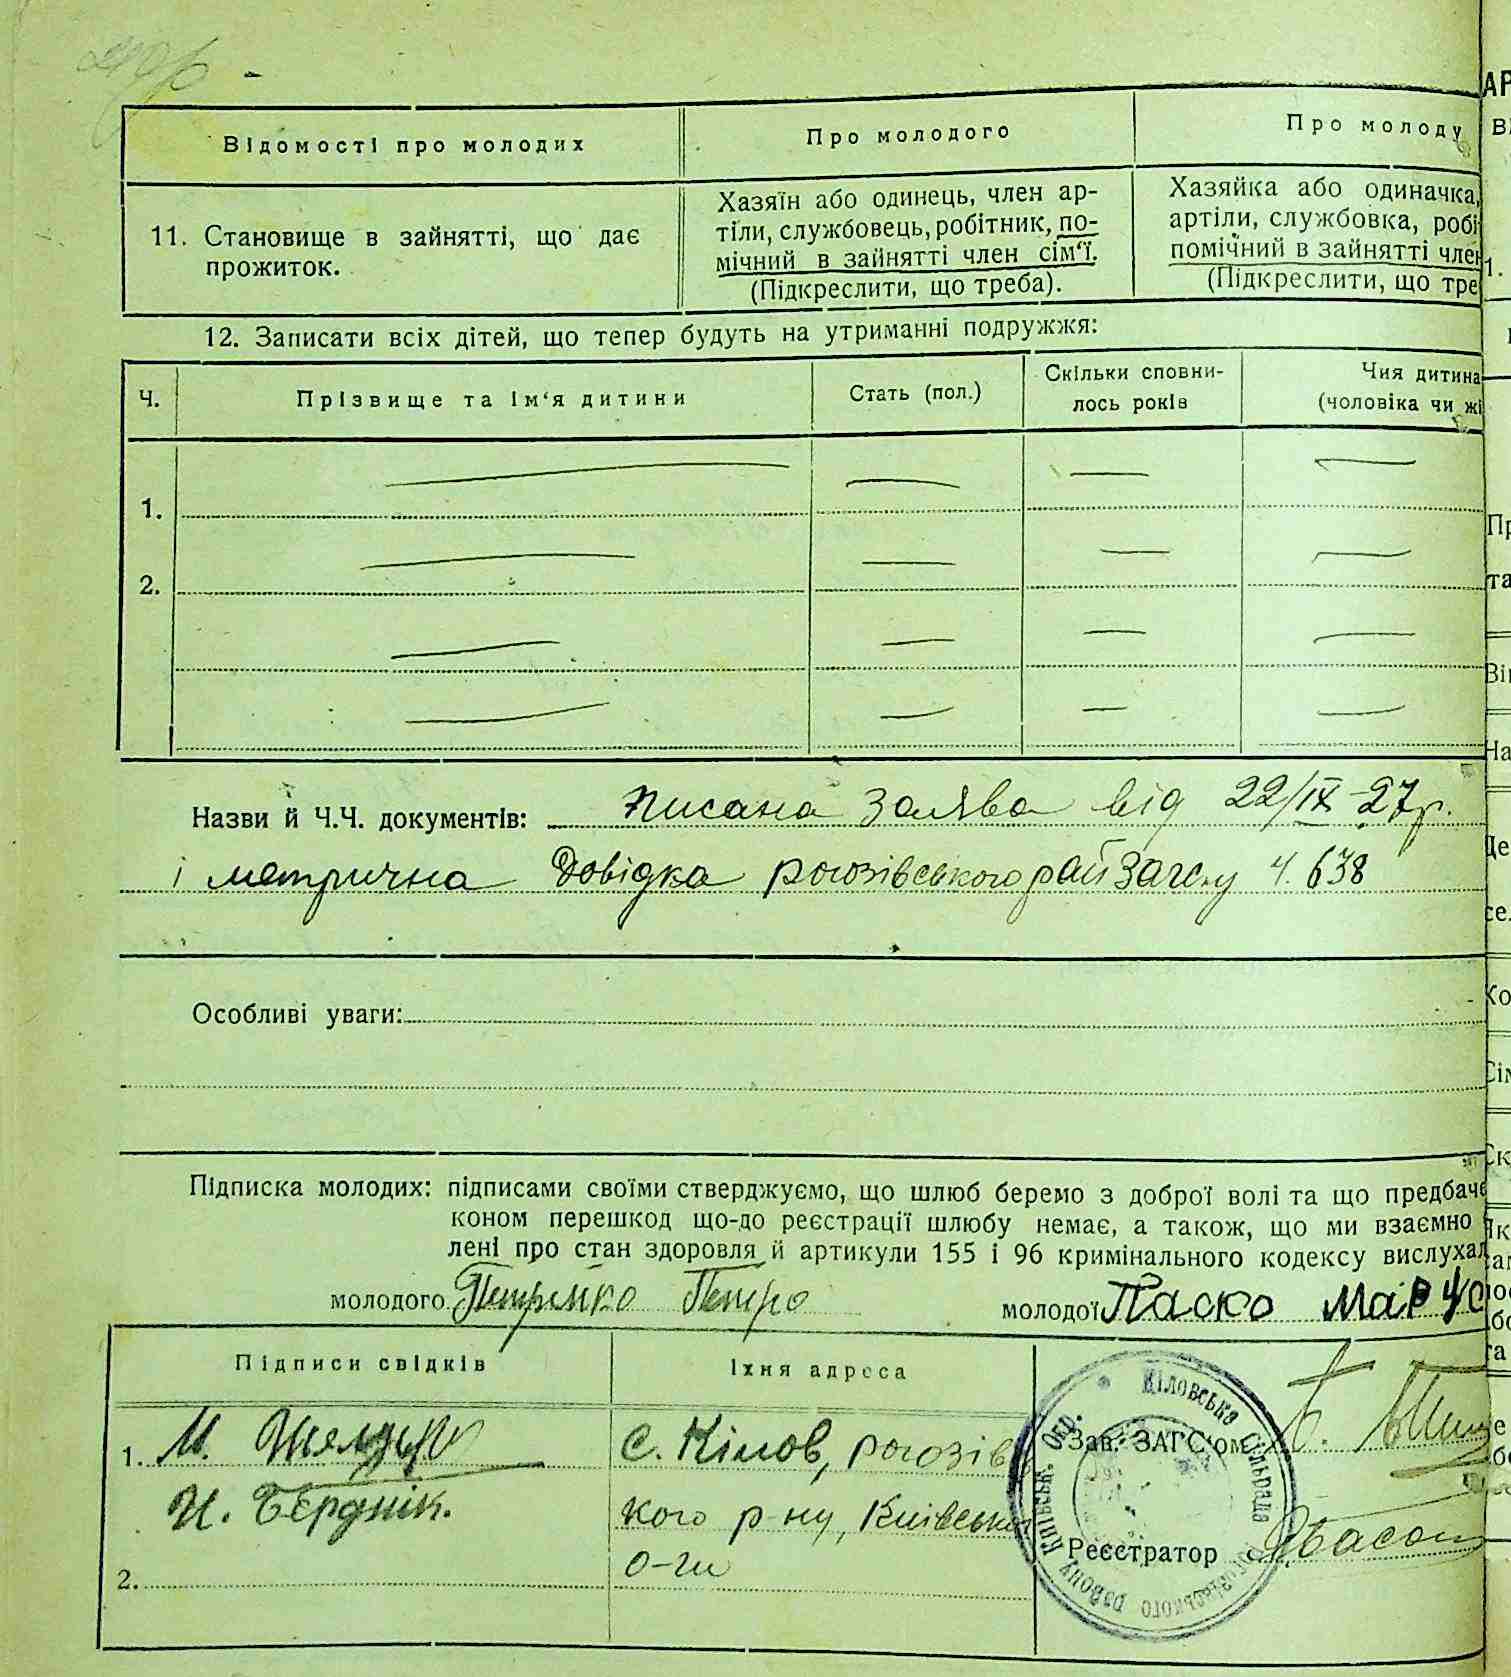 Відомості про молодих
Про молодого
Про молоду
11. Становище в зайнятті, що дає
прожиток.
Хазяїн або одинець, член ар-
тіли, службовець, робітник, по-
мічний в зайнятті член сім'ї.
(Підкреслити, що треба).
Хазяйка або одиначка,
артіли, службовка, робі
помічний в зайнятті член
(Підкреслити, що тре
12. Записати всіх дітей, що тепер будуть на утриманні подружжя:
Ч.
Прізвище та ім'я дитини
Стать (пол.)
Скільки сповни-
лось років
Чия дитина
(чоловіка чи жі
1.
2.
Назви й Ч.Ч. документів: писана заява від 22/IX-27р.
і метрична довідка рогозівського райзагсу ч. 638
Особливі уваги:
Підписка молодих: підписами своїми стверджуємо, що шлюб беремо з доброї волі та що предбаче
коном перешкод що-до реєстрації шлюбу немає, а також, що ми взаємно
лені про стан здоровля й артикули 155 і 96 кримінального кодексу вислухал
молодого Петренко Петро
молодої Паско
Підписи свідків
Їхня адреса
1. И.
с. Кілов, рогозівс
Н. Бєрднік.
кого р-ну, Київської
2.
о-ги
Зав. ЗАГС'ом
Реєстратор
Кіловська Сільрада Рогозівського району Київськ. Окр.